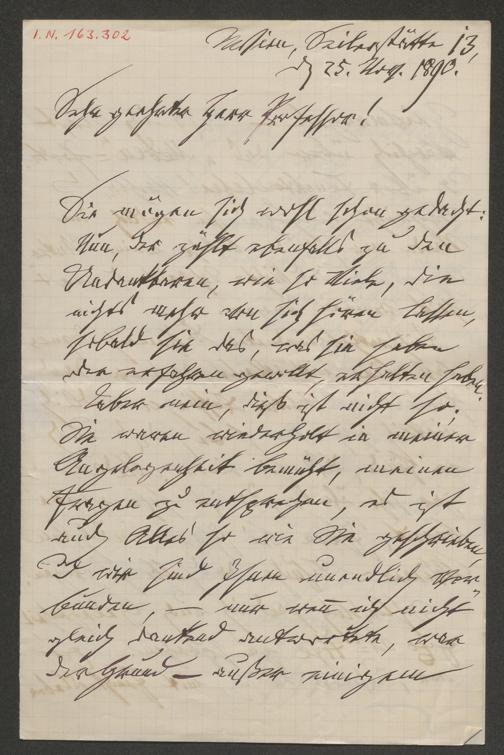 I.N. 163.302
Wien, Seilerstätte 13,
d 25. Nov. 1890.
Sehr geehrter Herr Professor!
Sie mögen sich wohl schon gedacht:
Nun, der zählt ebenfalls zu den
Undankbaren, wie so Viele, die
nichts mehr von sich hören lassen,
sobald sie das, was sie haben
oder erfahren gewollt, erhalten haben.
Aber nein, dieß ist nicht so.
Sie waren wiederholt in meiner
Angelegenheit bemüht, meinen
Fragen zu entsprechen, es ist
auch Alles so wie Sie geschrieben,
wir sind Ihnen unendlich ver-
bunden, — nur wenn ich nicht
gleich dankend antwortete, war
der Grund — außer einigem